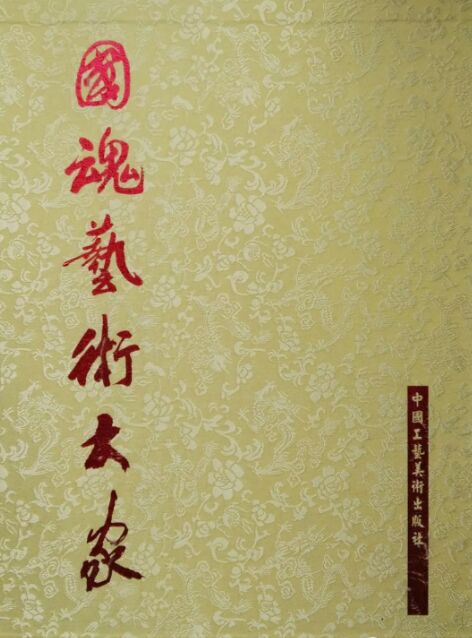 國魂藝術大家
中國工藝美術出版社